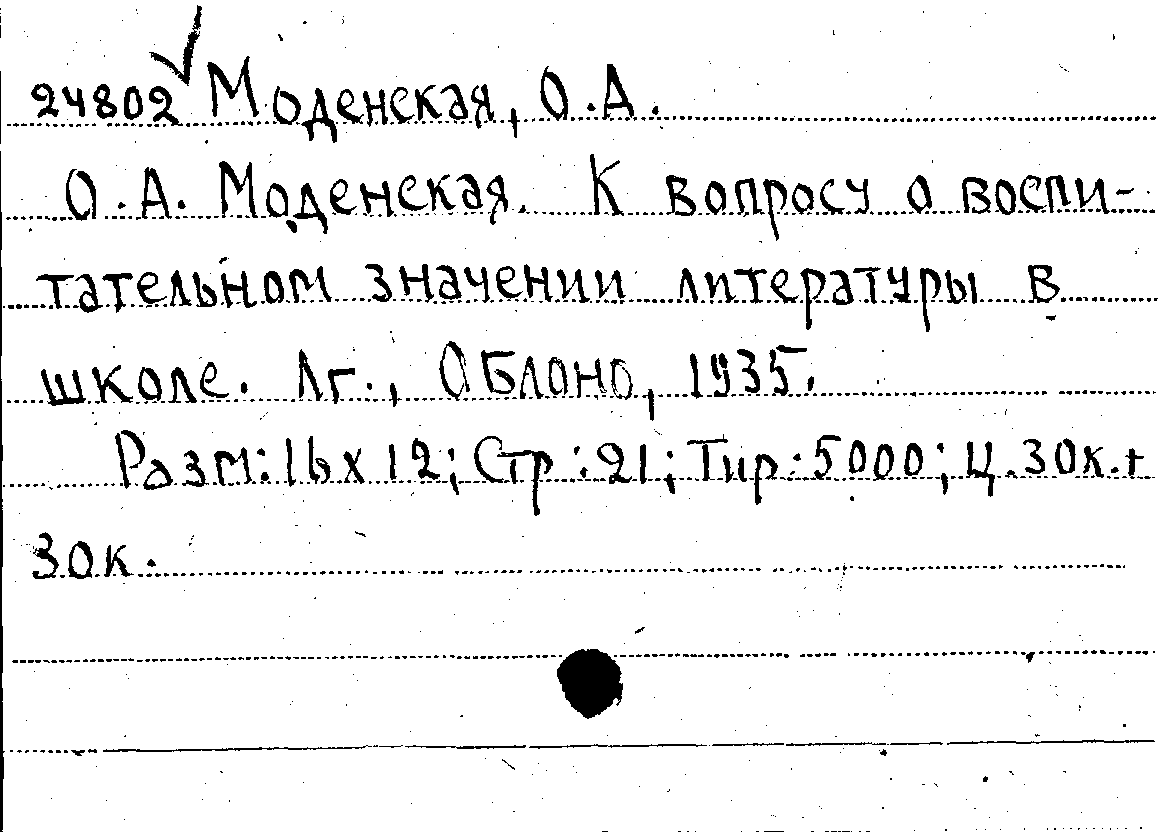 24802 Моденская, О.А.
О.А. Моденская. К вопросу о воспи-
тательном значении литературы в
школе. Лг., Облоно, 1935.
Разм: 16 х 12; Стр: 21; Тир: 5000; Ц. 30к. +
30к.